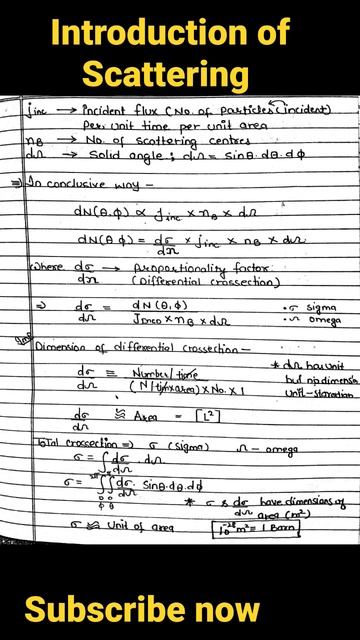 Introduction of
Scattering
jinc → incident flux (No. of particles (incident)
per unit time per unit area
nB → No. of scattering centres
dΩ → Solid angle ; dΩ = sinθ.dθ.dφ
⇒ In conclusive way –
dN(θ.φ) ∝ jinc × nB × dΩ
dN(θ φ) = dσ/dΩ × jinc × nB × dΩ
where dσ/dΩ → Proportionality factor
(Differential crossection)
⇒ dσ/dΩ = dN(θ,φ) / Jinc × nB × dΩ
• σ sigma
• Ω omega
Imp
Dimension of differential crossection –
dσ/dΩ ≡ Number/time / (N/time×area) × No. × 1
* dΩ has unit
but no dimension
unit – steradian
dσ/dΩ ≈ Area = [L²]
Total crossection ⇒ σ (sigma) Ω – omega
σ = ∫ dσ/dΩ . dΩ
σ = ∫∫ dσ/dΩ sinθ.dθ.dφ
* σ & dσ/dΩ have dimensions of
area (m²)
σ ≈ Unit of area 10⁻²⁸ m² = 1 Barn
Subscribe now